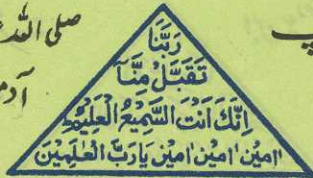 صلی اللہ
رَبَّنَا
تَقَبَّلْ مِنَّا
اِنَّكَ اَنْتَ السَّمِيْعُ الْعَلِيْمُ
اٰمِيْن اٰمِيْن اٰمِيْن يَارَبَّ الْعٰلَمِيْنَ